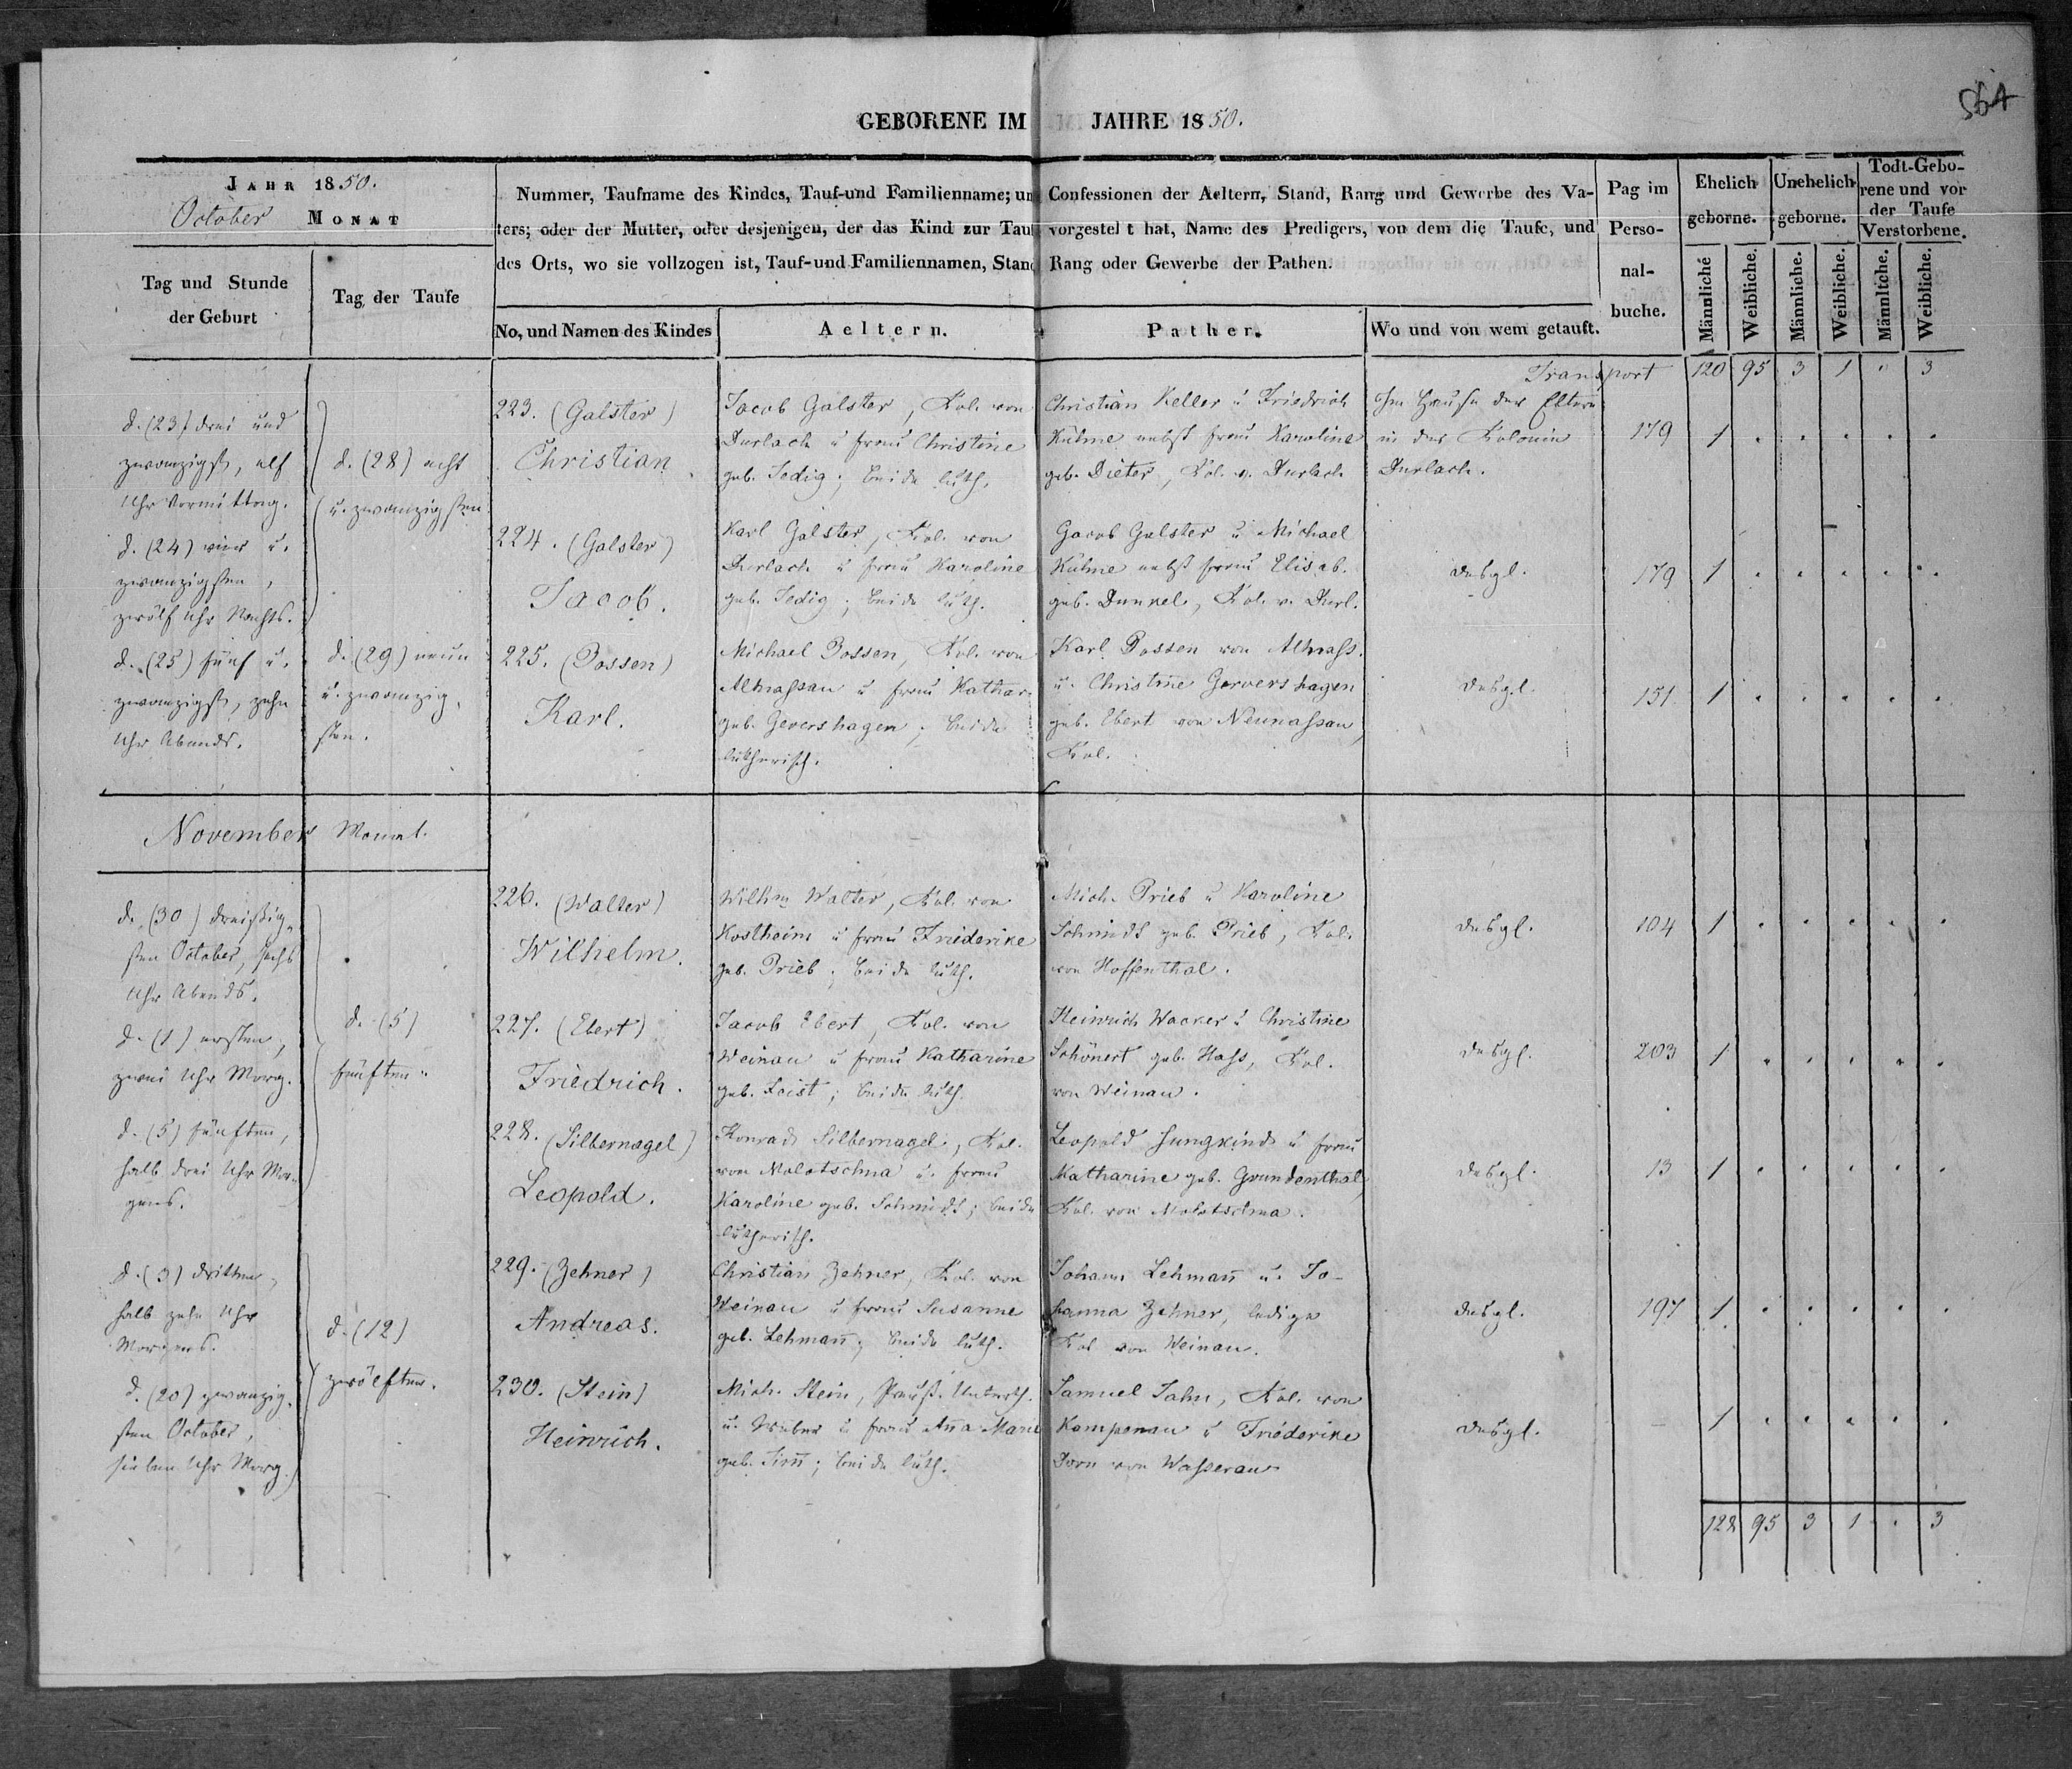 564
GEBORENE IM JAHRE 1850.
JAHR 1850.
October MONAT
Tag und Stunde
der Geburt
Tag der Taufe
Nummer, Taufname des Kindes, Tauf-und Familienname; un Confessionen der Aeltern, Stand, Rang und Gewerbe des Va-
ters; oder der Mutter, oder desjenigen, der das Kind zur Tau vorgestel t hat, Name des Predigers, von dem die Taufe, und
des Orts, wo sie vollzogen ist, Tauf-und Familiennamen, Stand Rang oder Gewerbe der Pathen.
No, und Namen des Kindes
Aeltern.
Pather.
Wo und von wem getauft.
Pag im
Perso-
nal-
buche.
Ehelich
geborne.
Unehelich
geborne.
Todt-Gebo-
rene und vor
der Taufe
Verstorbene.
Männliche
Weibliche.
Männliche.
Weibliche.
Männliche.
Weibliche.
Transport 120 95 3 1 . 3
d. (23) drei und
zwanzigst, elf
Uhr Vormittag.
d. (28) acht
u. zwanzigsten
223. (Galster)
Christian
Jacob Galster, Kol. von
Durlach u frau Christine
geb. Jedig; beide luth.
Christian Keller u Friedrich
Kühne nebst frau Karoline
geb. Dieter, Kol. v. Durlach
Im Hause der Eltern
in der Kolonie
Durlach.
179 1 . . . . .
d. (24) vier u.
zwanzigsten,
zwölf Uhr Nachts.
224. (Galster)
Jacob.
Karl Galster, Kol. von
Durlach u frau Karoline
geb. Jedig; beide luth.
Jacob Galster u Michael
Kühne nebst frau Elisab.
geb. Dunkel, Kol. v. Durl.
desgl.
179 1 . . . . .
d. (25) fünf u.
zwanzigst, zehn
Uhr Abends.
d. (29) neun
u. zwanzig-
sten.
225. (Possen)
Karl.
Michael Possen, Kol. von
Altnassau u frau Kathar.
geb. Gevershagen; beide
lutherisch.
Karl Possen von Altnass.
u. Christine Gervershagen
geb. Ebert von Neunassau,
Kol.
desgl.
151 1 . . . . .
November Monat.
d. (30) dreißig-
sten October, sechs
Uhr Abends.
226. (Walter)
Wilhelm.
Wilhm Walter, Kol. von
Kostheim u frau Friederike
geb. Prieb; beide luth.
Mich. Prieb u Karoline
Schmidt geb. Prieb, Kol.
von Hoffenthal.
desgl.
104 1 . . . . .
d. (1) ersten,
zwei Uhr Morg.
d. (5)
fünften.
227. (Ebert)
Friedrich.
Jacob Ebert, Kol. von
Weinau u frau Katharine
geb. Feist; beide luth.
Heinrich Wacker u Christine
Schönert geb. Hass, Kol.
von Weinau.
desgl.
203 1 . . . . .
d. (5) fünften,
halb drei Uhr Mor-
gens.
228. (Silbernagel)
Leopold.
Konrad Silbernagel, Kol.
von Molotschna u. frau
Karoline geb. Schmidt; beide
lutherisch.
Leopold Jungkind u frau
Katharine geb. Grundenthal,
Kol. von Molotschna.
desgl.
13 1 . . . . .
d. (3) dritten,
halb zehn Uhr
Morgens.
d. (12)
zwölften.
229. (Zehner)
Andreas.
Christian Zehner, Kol. von
Weinau u frau Susanne
geb. Lehmann; beide luth.
Johann Lehmann u. Jo-
hanna Zehner, ledige
Kol von Weinau.
desgl.
197 1 . . . . .
d. (20) zwanzig-
sten October,
sieben Uhr Morg.
230. (Stein)
Heinrich.
Mich. Stein, Preuß. Unterth.
u. Weber u frau Anna Marie
beide luth.
Samuel Jahn, Kol. von
Kampenau u Friederike
Dorn von Wasserau
desgl.
– 1 . . . . .
128 95 3 1 . 3